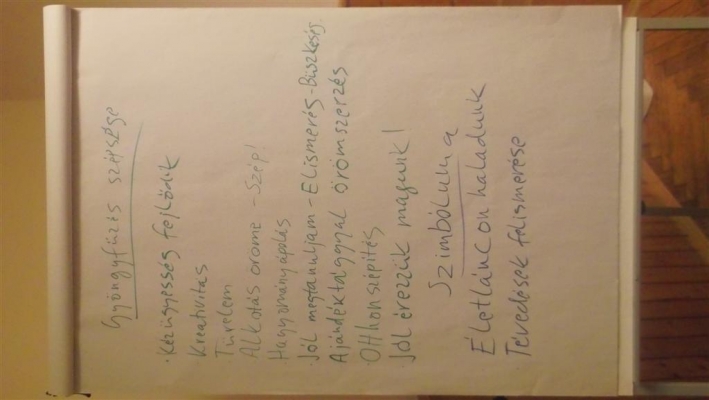 Gyöngyfűzés szépsége
· Kézügyesség fejlődik
· Kreativitás
· Türelem
Alkotás öröme - Szép!
Hagyományápolás
· Jól megtanuljam - Elismerés - Büszkeség
Ajándéktárggyal örömszerzés
· Otthonszépítés
· Jól érezzük magunk!
Szimbóluma
Életlánc on haladunk
Tévedések felismerése